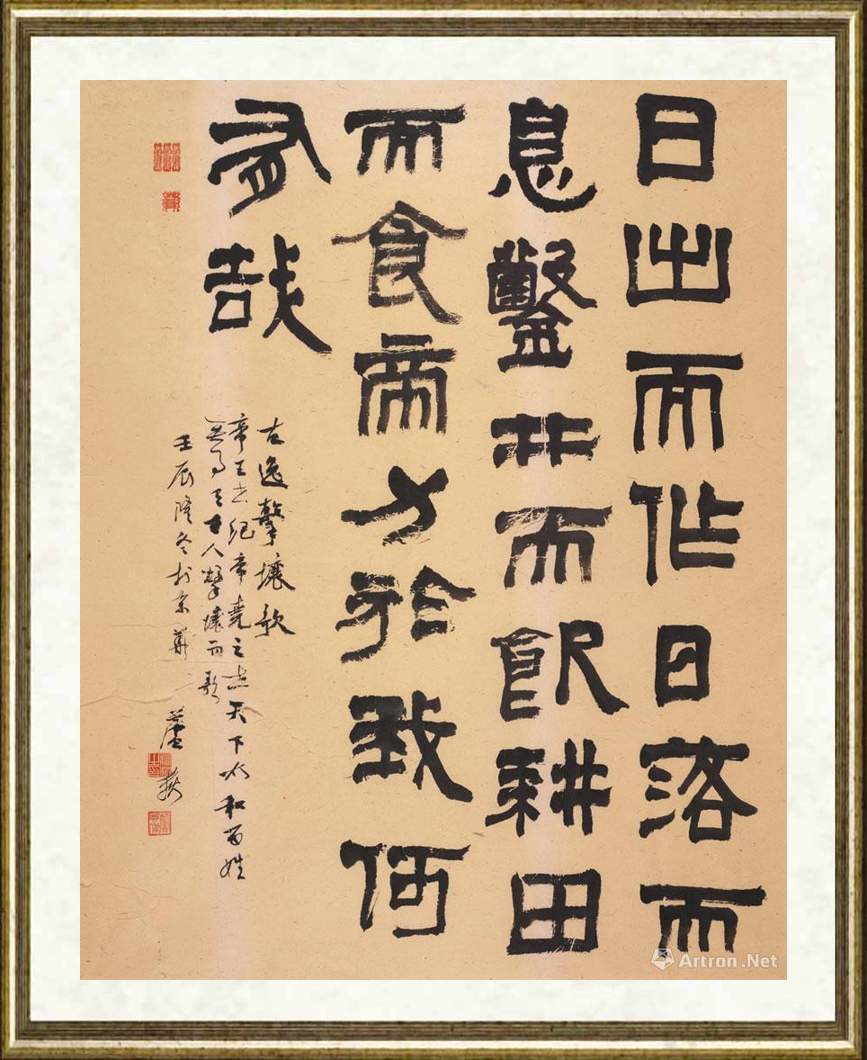 日出而作日落而
息鑿井而飲耕田
而食帝力於我何
有哉
古逸擊壤歌
帝王世紀帝堯之世天下和百姓
無事人擊壤而歌
壬辰隆冬於京華
Artron.Net